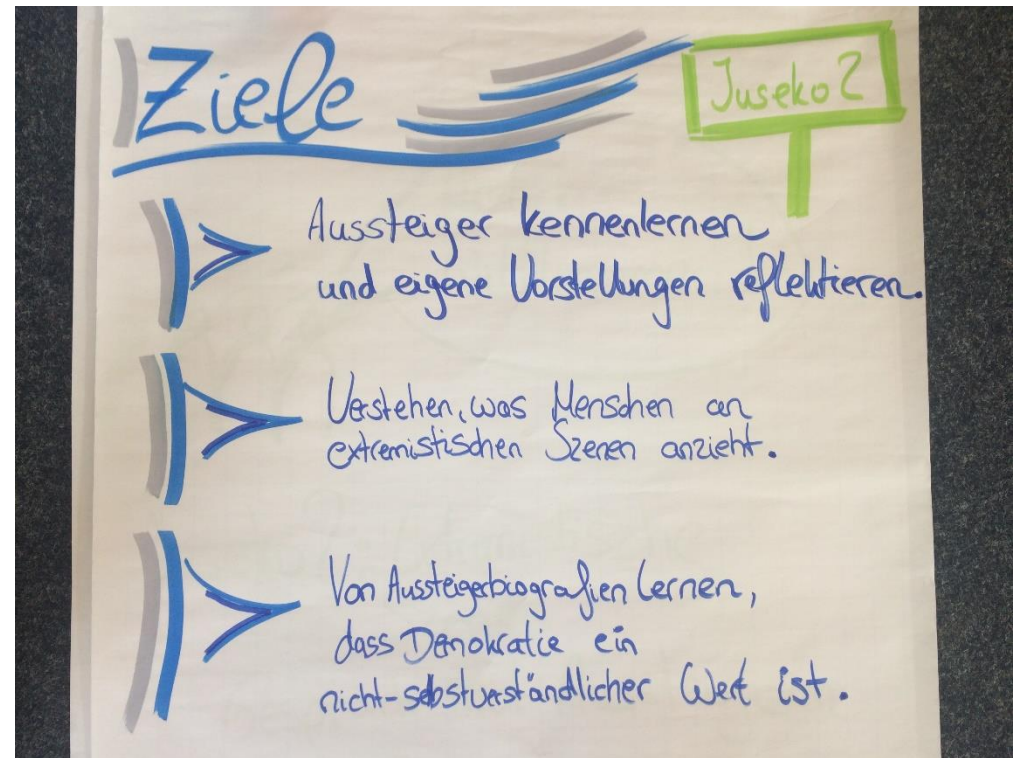 Ziele
Juseko 2
Aussteiger kennenlernen
und eigene Vorstellungen reflektieren.
Verstehen, was Menschen an
extremistischen Szenen anzieht.
Von Aussteigerbiografien lernen,
dass Demokratie ein
nicht-selbstverständlicher Wert ist.